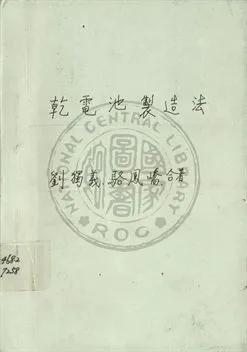 乾電池製造法
劉獨義 駱鳳嶠 合著
NATIONAL CENTRAL LIBRARY
ROC
4682
7258